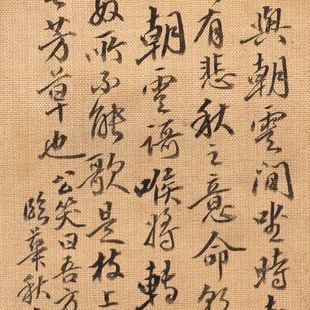 與朝雲閒坐時
有悲秋之意命
朝雲謌喉將轉
奴所不能歌是枝上
芳草也公笑曰吾方
臨華秋